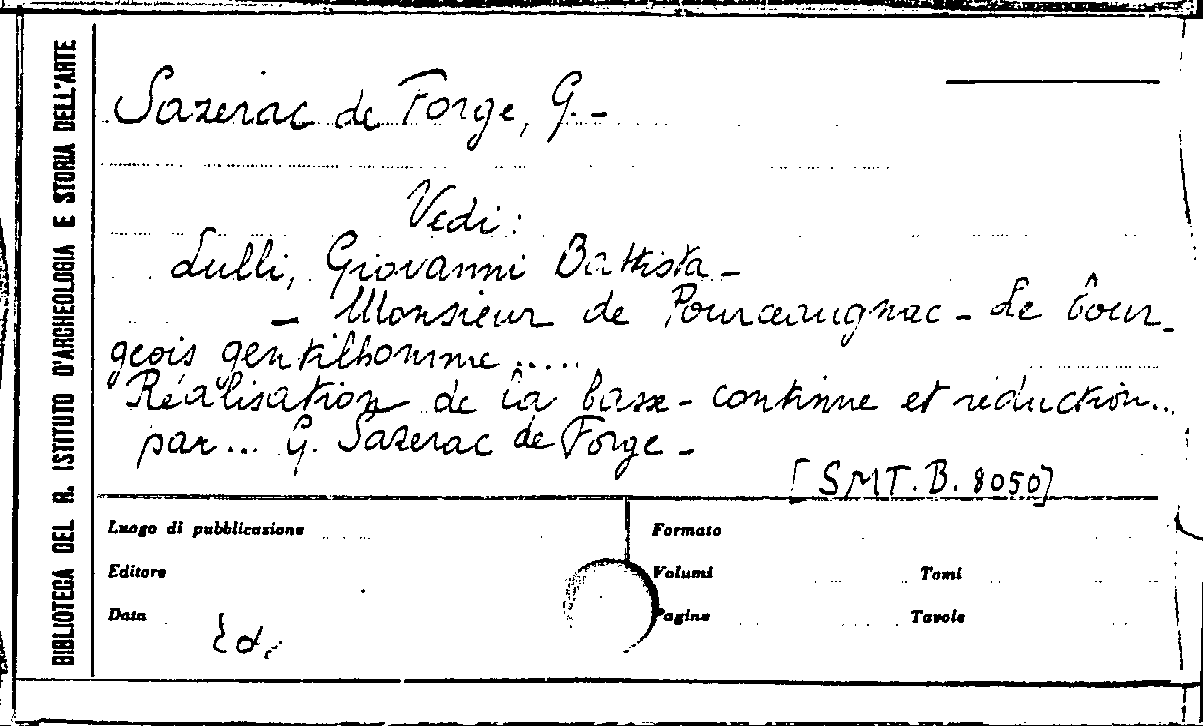 BIBLIOTECA DEL R. ISTITUTO D'ARCHEOLOGIA E STORIA DELL'ARTE
Sazerac de Forge, G. -
Vedi:
Lulli, Giovanni Battista -
- Monsieur de Pourceaugnac - Le bour-
geois gentilhomme .....
Réalisation de la basse-continue et réduction...
par... G. Sazerac de Forge -
[SMT. B. 8050]
Luogo di pubblicazione
Formato
Editore
Volumi
Tomi
Data
Pagine
Tavole
Ed.